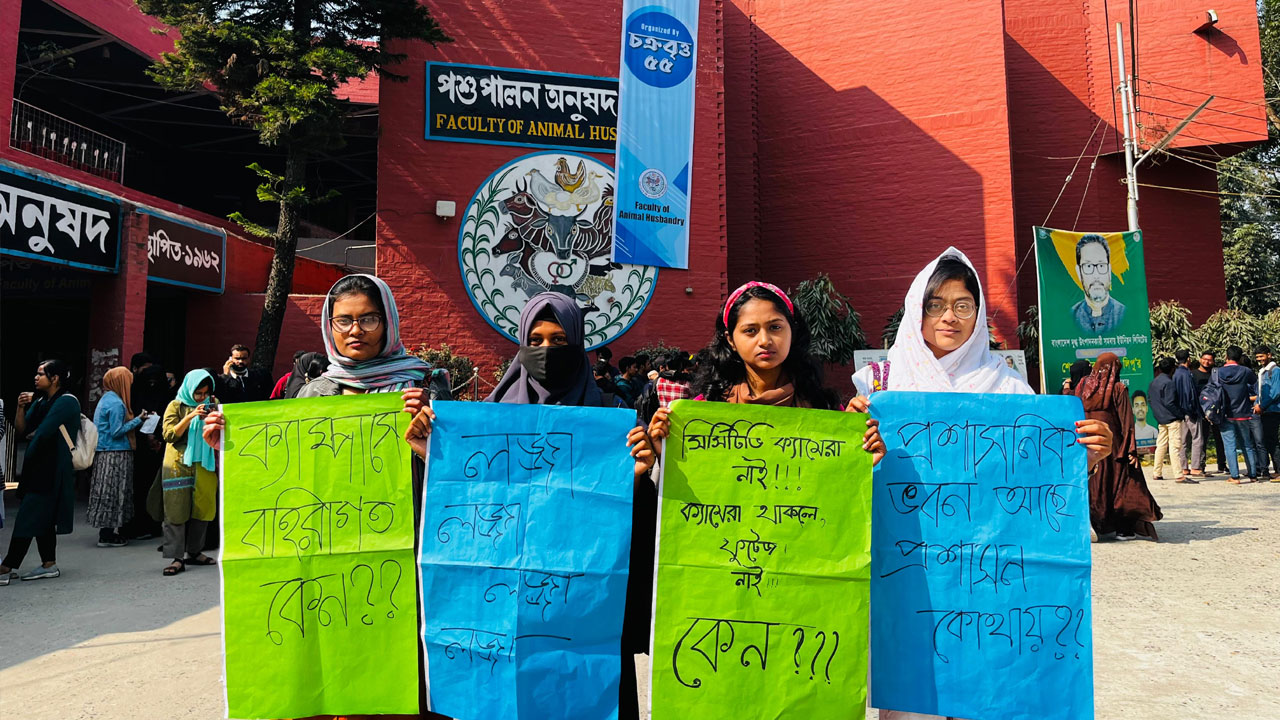 Organized By
চক্রবৃত্ত
৫৫
পশুপালন অনুষদ
FACULTY OF ANIMAL HUS
Faculty of
Animal Husbandry
অনুষদ
স্থাপিত-১৯৬২
Faculty of Anim
বাংলাদেশ দুগ্ধ উৎপাদনকারী সমবায় ইউনিয়ন লিমিটেড
ক্যাম্পাসে
বহিরাগত
কেন??
লজ্জা
লজ্জা
লজ্জা
লজ্জা
সিসিটিভি ক্যামেরা
নাই!!!
ক্যামেরা থাকলে,
ফুটেজ
নাই!!!
কেন???
প্রশাসনিক
ভবন আছে
প্রশাসন
কোথায়??